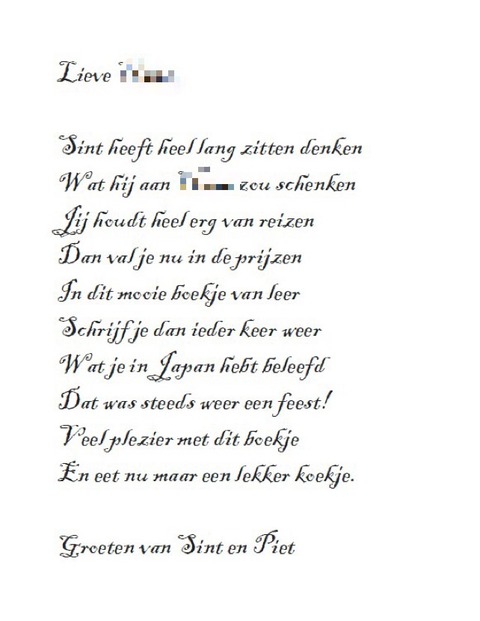 Lieve
Sint heeft heel lang zitten denken
Wat hij aan zou schenken
Jij houdt heel erg van reizen
Dan val je nu in de prijzen
In dit mooie boekje van leer
Schrijf je dan ieder keer weer
Wat je in Japan hebt beleefd
Dat was steeds weer een feest!
Veel plezier met dit boekje
En eet nu maar een lekker koekje.
Groeten van Sint en Piet